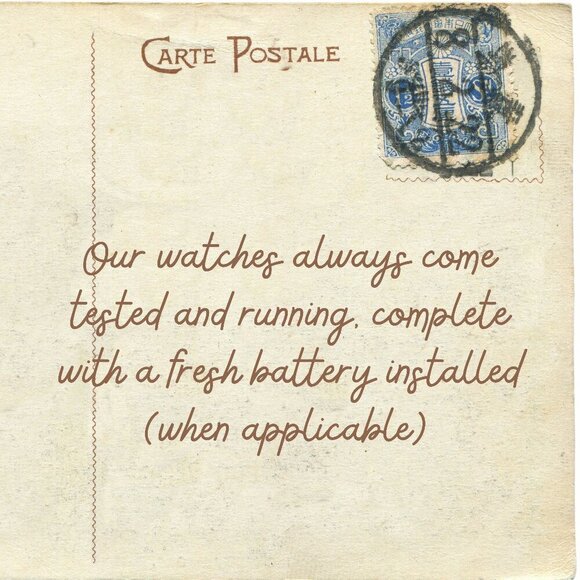 CARTE POSTALE
Our watches always come
tested and running, complete
with a fresh battery installed
(when applicable)